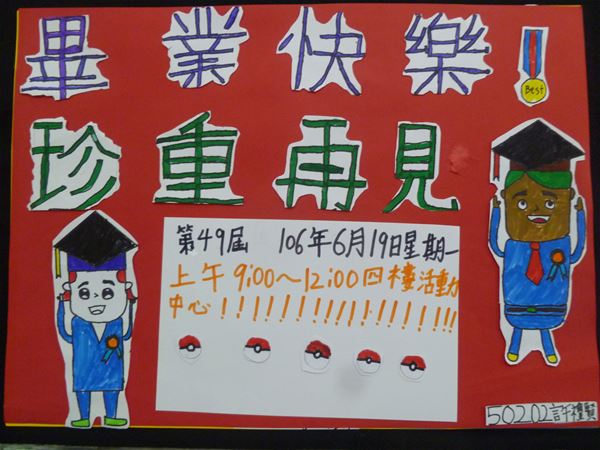 畢業快樂
Best
珍重再見
第49屆 106年6月19日星期一
上午9:00~12:00四樓活動
中心!!!!!!!!!!!!!!!!!!
50202許禮賢